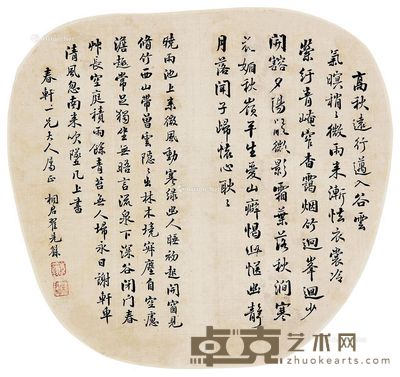 高秋遠行邁入谷雲
氣暝稍稍微雨来漸怯衣裳冷
縈行青嶂窄杳靄烟竹迥峯迴少
開豁夕陽照微影霜葉落秋澗寒
花媚秋嶺平生愛山癖愒此愜幽靜
月落聞子歸懷心耿々
曉雨池上来微風動寒綠幽人睡初起開窗見
脩竹西山帶曾雲隱々出林木境寂塵自空慮
澹趣常足獨坐無晤言流泉下深谷閉門春
艸長空庭積雨餘青苔無人掃永日謝軒車
清風忽南来吹墮几上書
春軒一兄大人屬正 桐君翟
卓克艺术网
zhuokearts.com